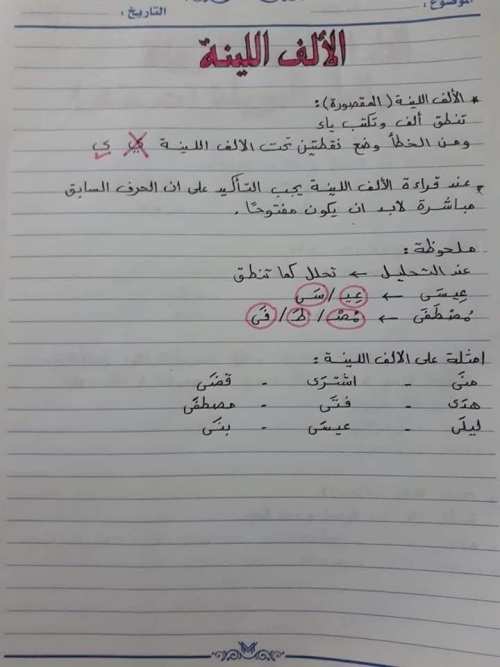 الموضوع :
التاريخ :
الألف اللينة
* الألف اللينة ( المقصورة ) :
تنطق ألف وتكتب ياء
ومن الخطأ وضع نقطتين تحت الالف اللينة ي ى
* عند قراءة الألف اللينة يجب التأكيد على ان الحرف السابق
مباشرة لابد ان يكون مفتوحًا .
ملحوظة :
عند التحليل ← تحلل كما تنطق
عِيسَى ← عِيـ / سَى
مُصْطَفَى ← مُصْـ / طَـ / فَى
امثلة على الالف اللينة :
منَى - اشترَى - قضَى
هدَى - فتَى - مصطفَى
ليلَى - عيسَى - بنَى